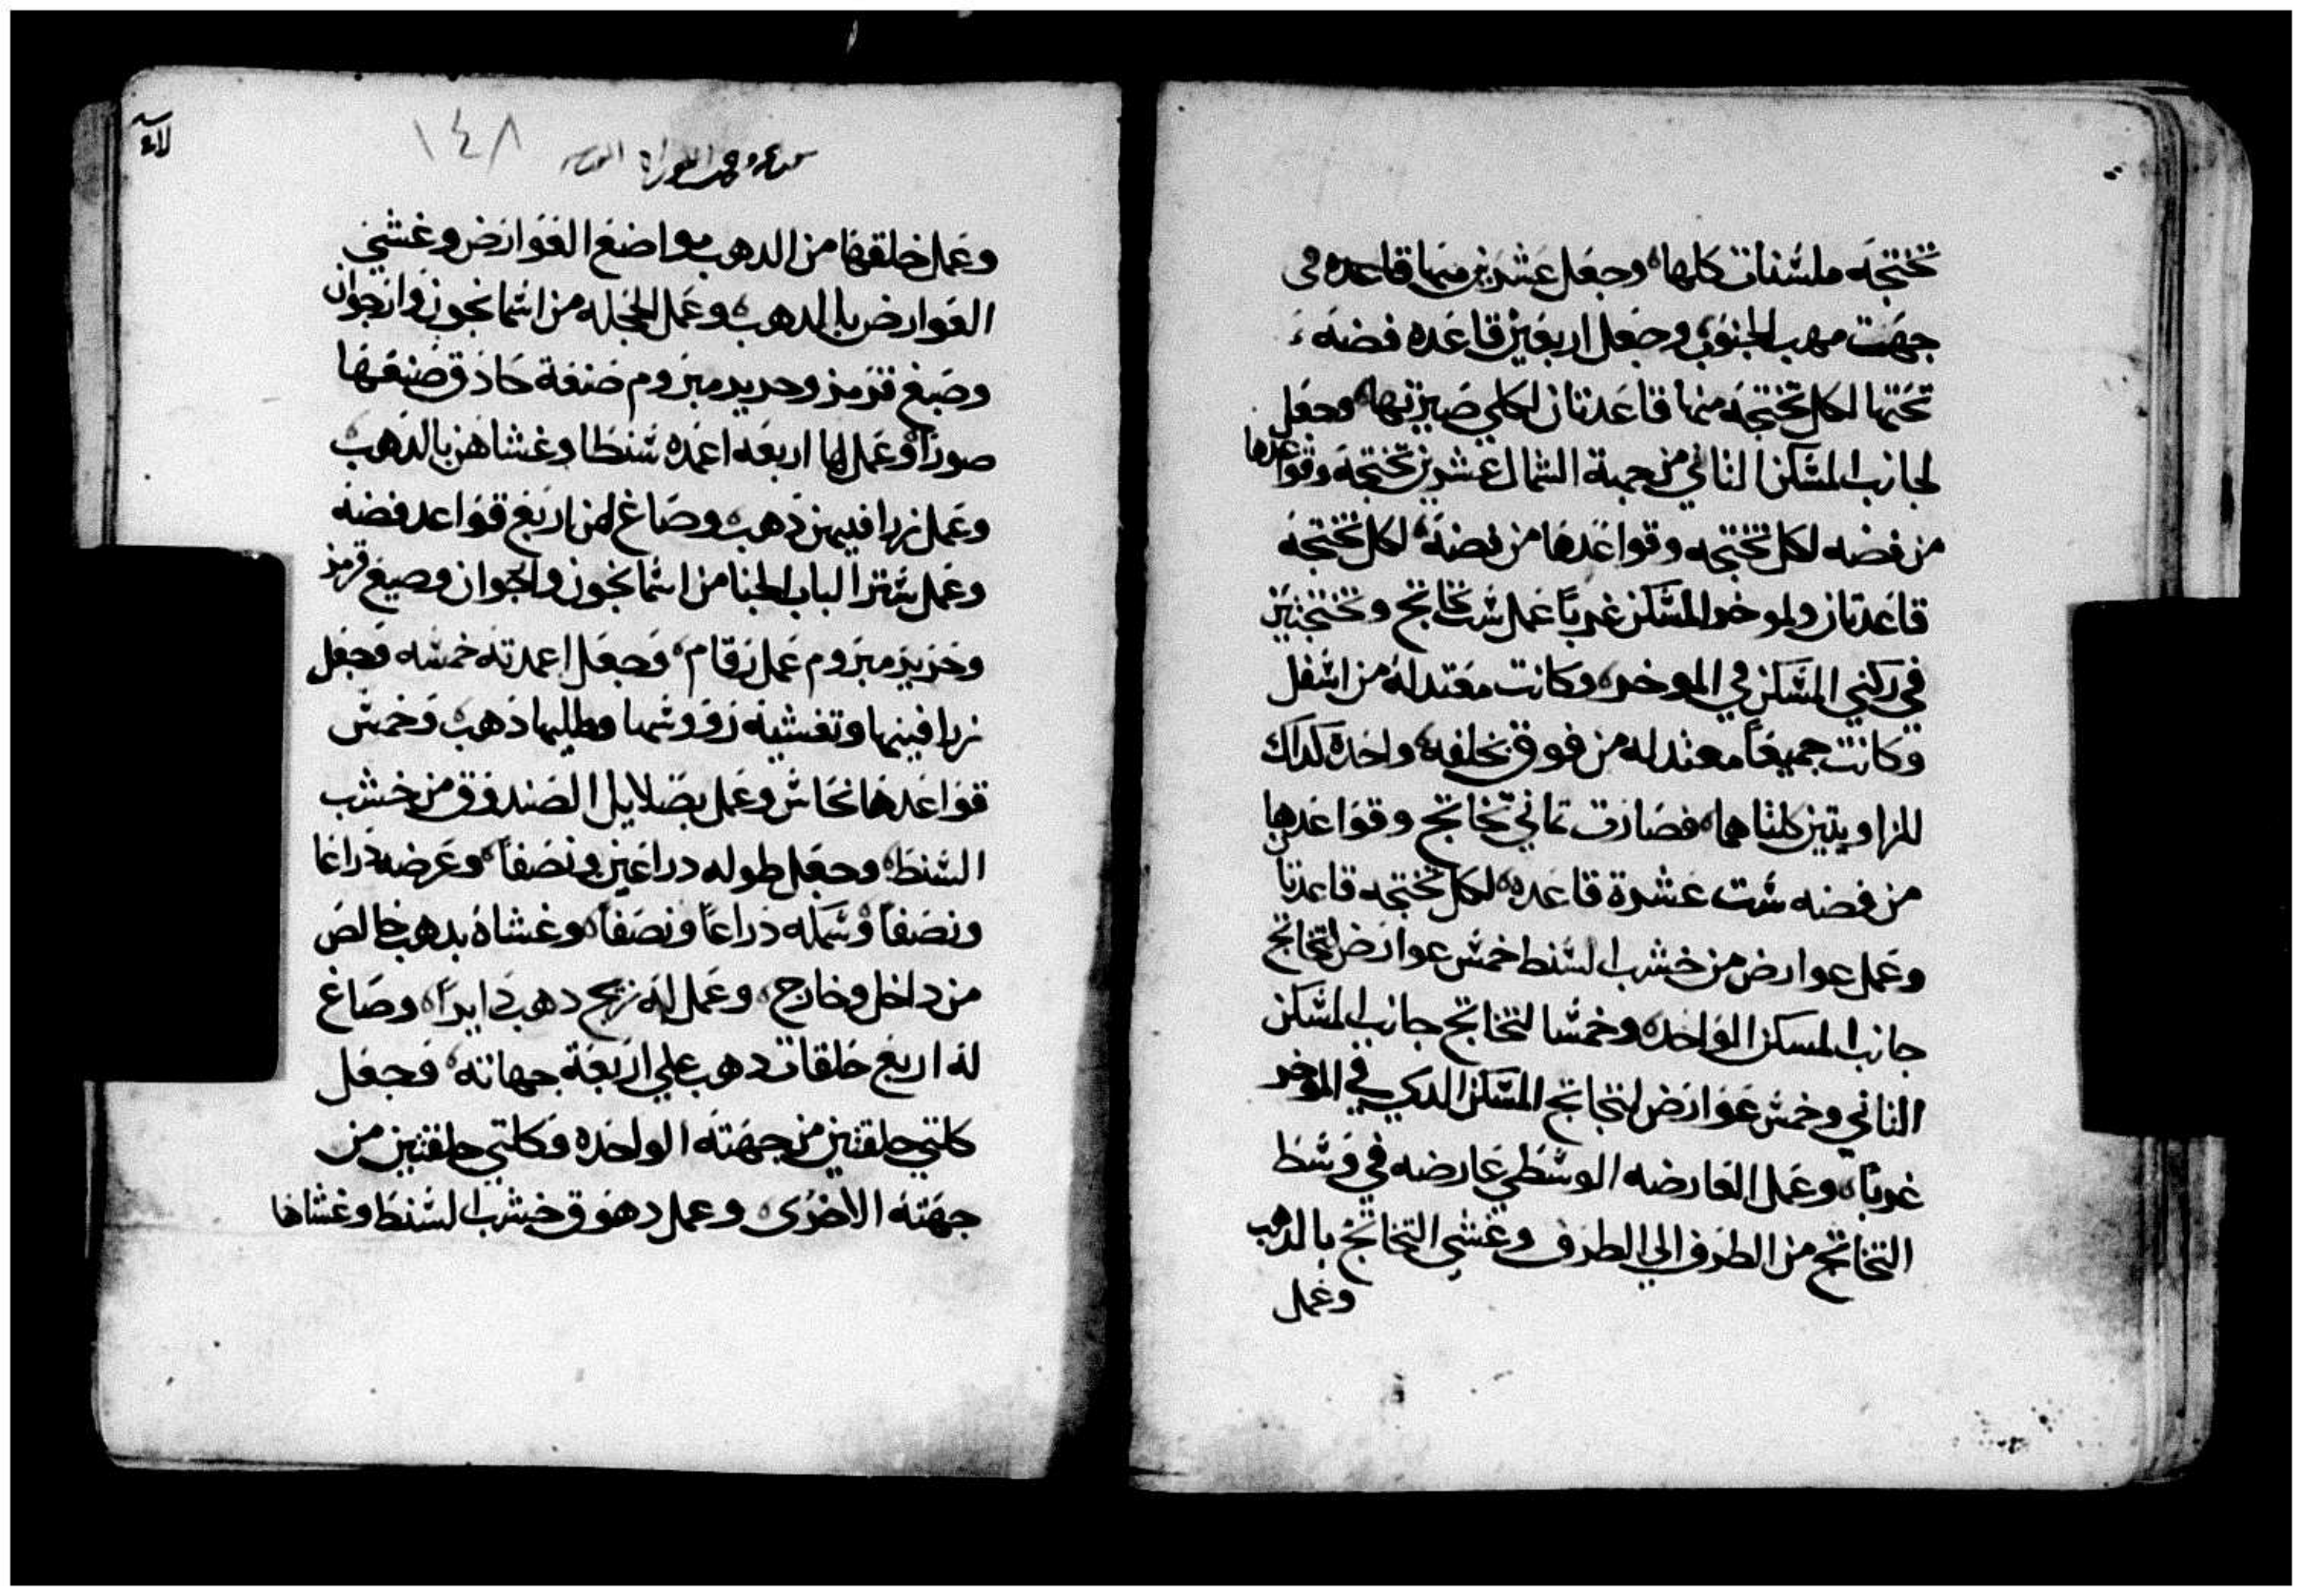 تختجه ملسنات كلها وجعل عشرين منها قاعده في
جهت مهب الجنوب وجعل اربعين قاعده فضه
تحتها لكل تختجه منها قاعدتان لكلي صيرتها وجعل
لجانب المسكن الثاني من جهة الشمال عشرين تختجه وقواعدها
من فضه لكل تختجه وقواعدها من فضة لكل تختجه
قاعدتان ولموخر المسكن غربياً عمل ست تخاتج وتختجتين
في ركني المسكن في الموخر وكانت معتدله من اسفل
وكانت جميعاً معتدله من فوق بحلقه واحده كذلك
للزاويتين كلتاهما فصارت ثماني تخاتج وقواعدها
من فضه ست عشرة قاعده لكل تختجه قاعدتا
وعمل عوارض من خشب السنط خمس عوارض لتخاتج
جانب المسكن الواحده وخمسا لتخاتج جانب المسكن
الثاني وخمس عوارض لتخاتج المسكن الدي في الموخر
غربيا وعمل العارضه الوسطي عارضه في وسط
التخاتج من الطرف الي الطرف وغشي التخاتج بالدهب
وعمل
١٤٨
وعمل حلقها من الدهب مواضع العوارض وغشي
العوارض بالدهب وعمل الحجله من اسمانجون وارجوان
وصبغ قرمز وحرير مبروم صنعة حاذق صنعها
صوراً وعمل لها اربعه اعمده سنطا وغشاهن بالدهب
وعمل زرافيهن دهب وصاغ لهن اربع قواعد فضه
وعمل ستر الباب الخبا من اسمانجون وارجوان وصبغ قرمز
وحرير مبروم عمل رقام وجعل اعمدته خمسه وجعل
زرافينها وتغشية رووسها وطليها دهب وخمس
قواعدها نحاس وعمل بصلاييل الصندوق من خشب
السنط وجعل طوله دراعين ونصفاً وعرضه دراعا
ونصفاً وسمكه دراعاً ونصفاً وغشاه بدهب خالص
من داخل وخارج وعمل له زيج دهب دايراً وصاغ
له اربع حلقات دهب علي اربعة جهاته وجعل
كلتي حلقتين من جهته الواحده وكلتي حلقتين من
جهته الاخرى وعمل دهوق خشب السنط وغشاها